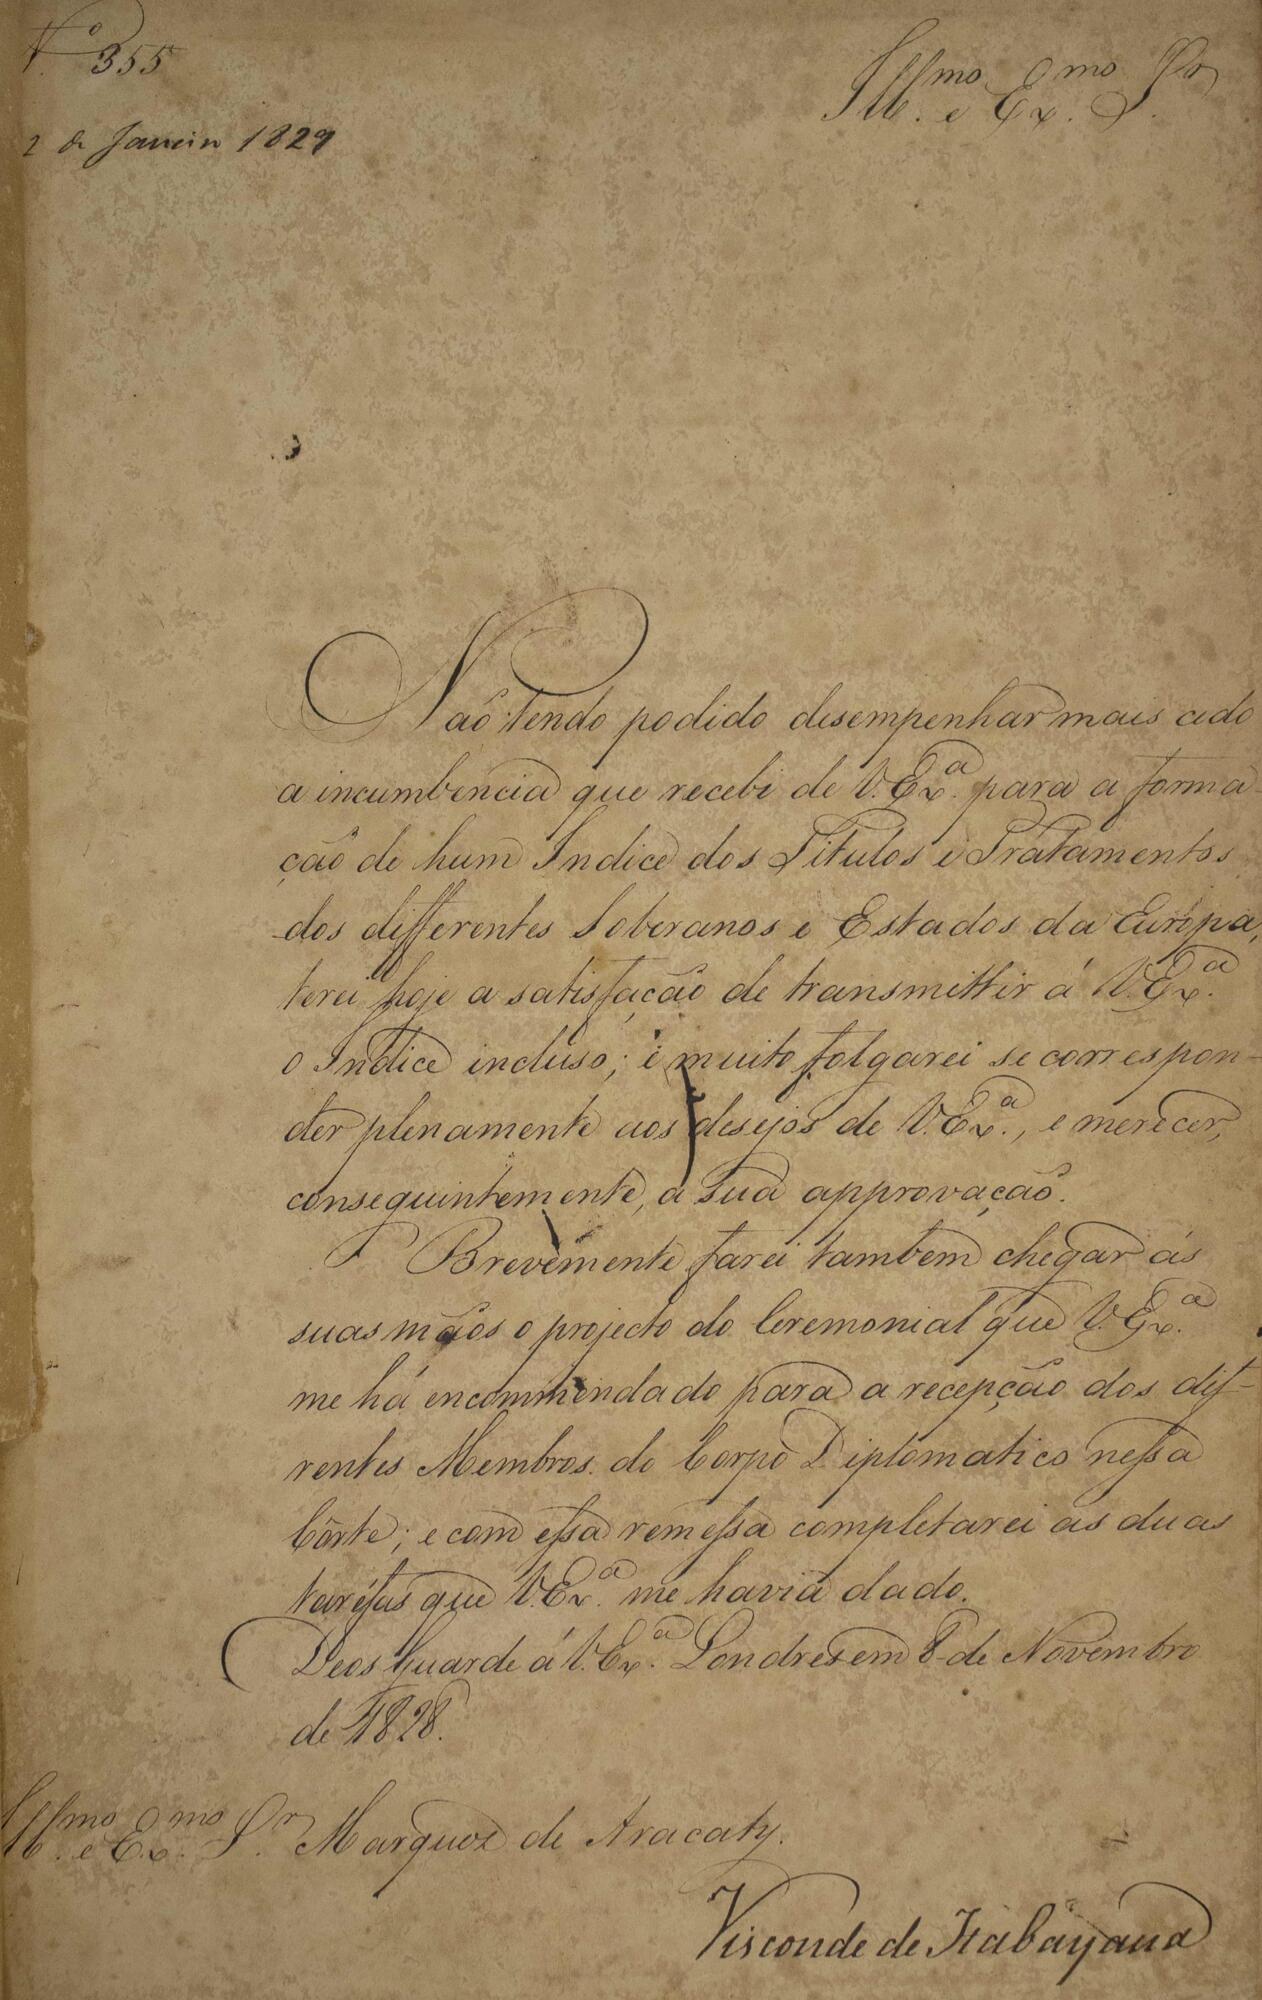 N.º 355
Ill.mo e Ex.mo Sr.
2 de Janeiro 1829
Não tendo podido desempenhar mais cedo
a incumbencia que recebi de V.Ex.a para a forma-
ção de hum Indice dos Titulos e Tratamentos
dos differentes Soberanos e Estados da Europa,
terei hoje a satisfação de transmittir á V.Ex.a
o Indice incluso; e muito folgarei se correspon-
der plenamente aos desejos de V.Ex.a, e merecer,
conseguintemente, a sua approvação.
Brevemente farei tambem chegar ás
suas mãos o projecto do Ceremonial que V.Ex.a
me há encommendado para a recepção dos dif-
rentes Membros do Corpo Diplomatico nessa
Côrte; e com essa remessa completarei as duas
taréfas que V.Ex.a me havia dado.
Deos Guarde á V.Ex.a Londres em 8 de Novembro
de 1828.
Ill.mo e Ex.mo Sr. Marquez de Aracaty.
Visconde de Itabayana